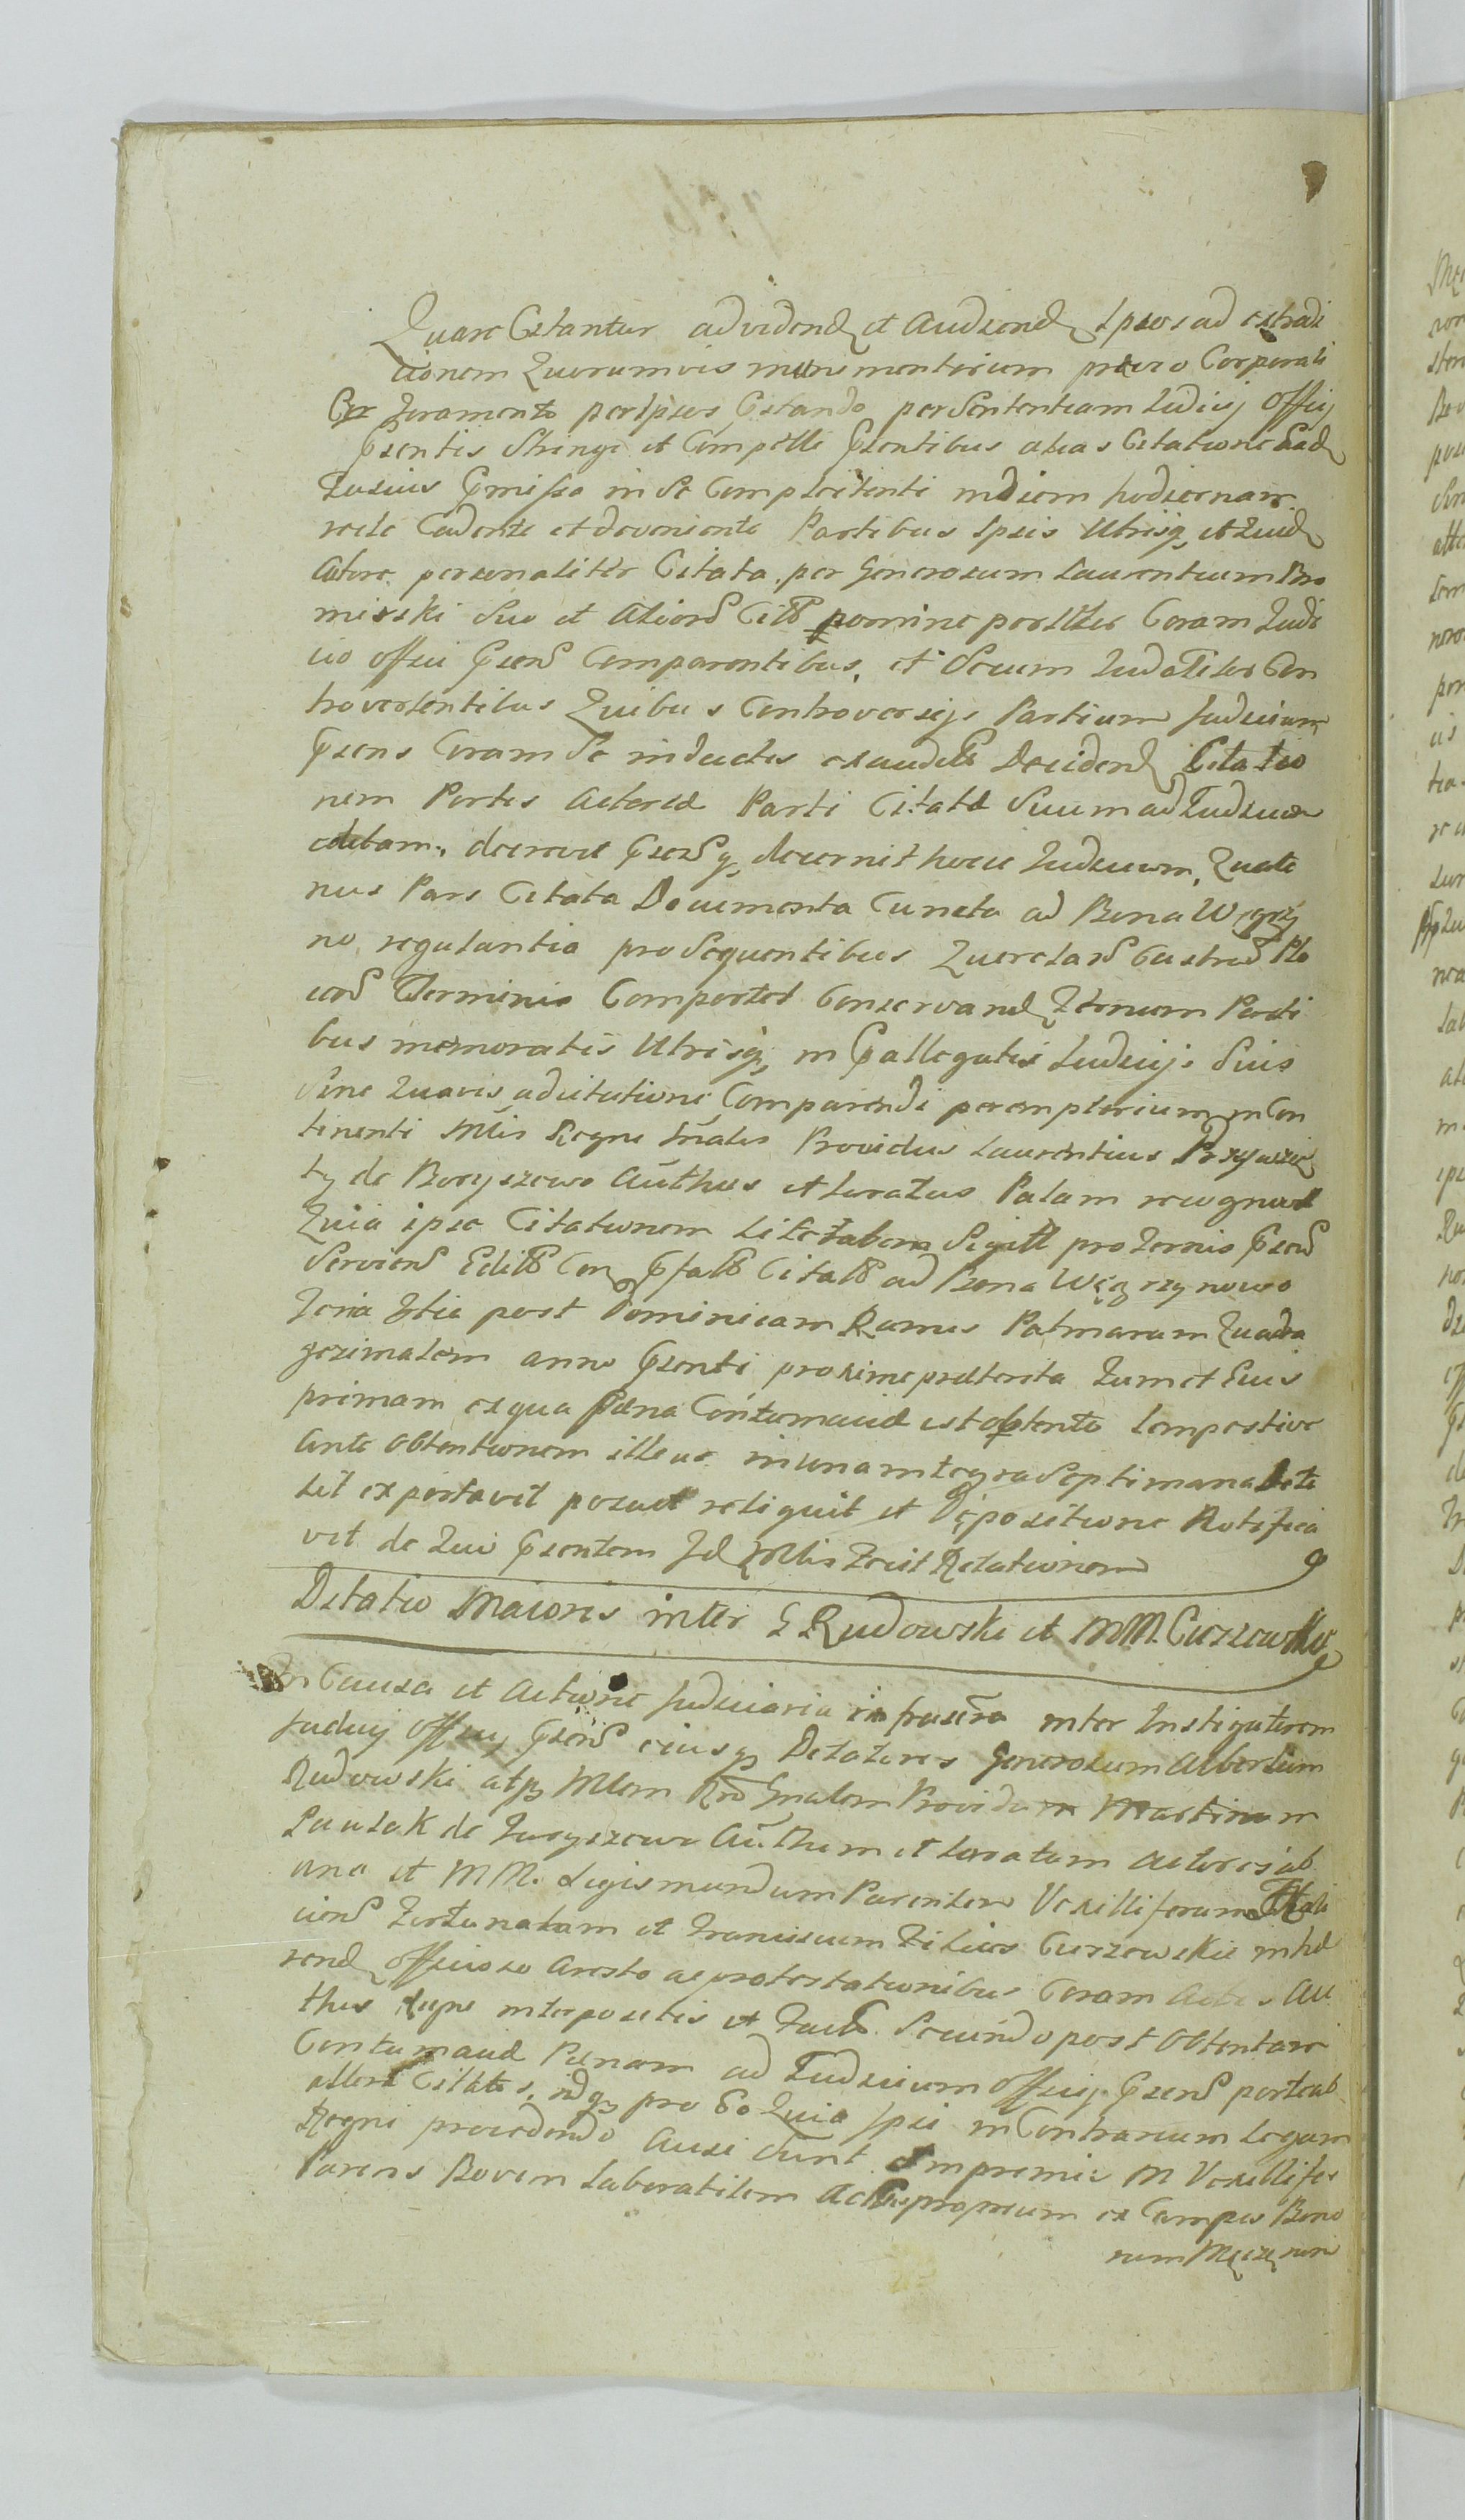 Quare Citantur ad vidend et Audiend Ipsos ad extradi
tionem Quorumvis munimentorum prævio Corporali
Juramento per Ipsos Estando per Sententiam Judicij Officij
Psentis Stringi et Compelli Psentibus alias Citatione Ead
Lusius Pmissa in Se Complectenti in diem hodiernam
recte Cadente et deveniente Partibus Ipsis Utrisq et quid
Actore personaliter Citata per Generosum Laurentium Bro
misski Suo et Aliorum Citt nomine pariter Coram Judi
cio officii Psens Comparentibus, et Secum Judialiter Con
trovertentibus Quibus Controversijs Partium Judicium
Psens Coram Se inductis exauditis Decidend Citatio
nem Partis Actoreæ Parti Citatæ Suum ad Judicium
editam, decrevit Psensq decernit hocce Judicium, Quate
nus Pars Citata Documenta Cuncta ad Bona Węgrzy
no regulantia pro Sequentibus Querelar Castren Plo
cen Terminis Comportet Conservand Terminum Parti
bus memoratis Utrisq in Pallegatis Judicijs Suis
Sine Quavis adcitatione Comparendi peremptorium in Con
tinenti Mtis Regni Gnalis Providus Laurentius
de Boryszewo Authus et Juratus Palam recognovit
Quia ipse Citationem Sigill pro Termis Psens
Serviens Edit Con Pfatt Citatt ad Bona Węgrzynowo
Feria 3tia post Dominicam Ramis Palmarum Quadra
gesimalem anno Psenti proxime præterita Tum et Eius
primam ex qua Pæna Contumaciæ est obtenta tempestive
ante obtentionem illius in una integra Septimana
tit exportavit posuit reliquit et Depositione Notifica
vit de Quo Psentem Id Mtis Fecit Relationem
Delatio Maioris inter G Rudowski et MM. Cieszewskie
In Causa et Actione Judiciaria infrascra inter Instigatorem
Judicij Officij Psens eiusq Delatores Generosum Albertum
Rudowski atq Mtem Rni Gnalem Providum Martinum
Pawlak de Boryszewo Authum et Juratum Actores ab
una et MM. Sigismundum Parentem Vexilliferum
ciens Fortunatum et Franciscum Filios Cieszewskie inhæ
rend Officioso Aresto ac protestationibus Coram Actis Au
thus Supe interpositis et Fact. Secundo post Obtentam
Contumaciæ Pænam ad Judicium Officij Psens parte ab
altera Citatos, idq pro Eo Quia Ipsi in Contrarium Legum
Regni procedendo Ausi Sunt Imprimis M Vexillifer
Parens Bovem Laboratilem Actoris proprium ex Campis Bono
rum